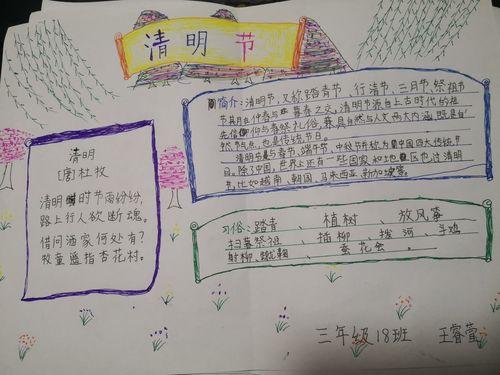 清明节
清明
[唐]杜牧
清明时节雨纷纷,
路上行人欲断魂。
借问酒家何处有?
牧童遥指杏花村。
简介:清明节,又称踏青节、行清节、三月节、祭祖节
节期在仲春与暮春之交。清明节源自上古时代的祖
先信仰与春祭礼俗,兼具自然与人文两大内涵,既是自
然节气点,也是传统节日。
清明节与春节、端午节、中秋节并称为中国四大传统节
日。除了中国,世界上还有一些国家和地区也过清明
节,比如越南、韩国、马来西亚、新加坡等。
习俗:踏青、植树、放风筝
扫墓祭祖、插柳、拨河、斗鸡
射柳、蹴鞠、蚕花会。
三年级18班 王睿萱